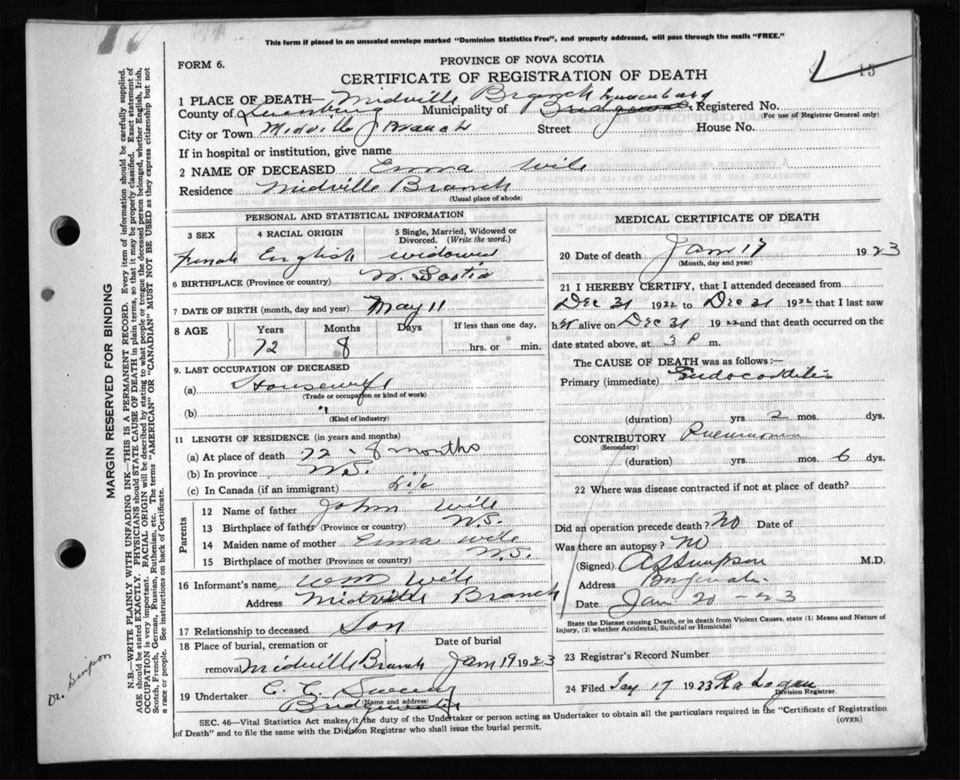 This form if placed in an unsealed envelope marked "Dominion Statistics Free", and properly addressed, will pass through the mails "FREE."
FORM 6.
PROVINCE OF NOVA SCOTIA
CERTIFICATE OF REGISTRATION OF DEATH
15
1 PLACE OF DEATH— Midville Branch Lunenburg
County of Lunenburg Municipality of Registered No.
(For use of Registrar General only)
City or Town Midville Branch Street House No.
If in hospital or institution, give name
2 NAME OF DECEASED Emma Wile
Residence Midville Branch
(Usual place of abode)
PERSONAL AND STATISTICAL INFORMATION
3 SEX 4 RACIAL ORIGIN 5 Single, Married, Widowed or Divorced. (Write the word.)
female English widowed
6 BIRTHPLACE (Province or country) N. Scotia
7 DATE OF BIRTH (month, day and year) May 11
8 AGE Years Months Days If less than one day,
72 8 hrs. or min.
9. LAST OCCUPATION OF DECEASED
(a) Housewife
(Trade or occupation or kind of work)
(b) "
(Kind of industry)
11 LENGTH OF RESIDENCE (in years and months)
(a) At place of death 72 - 8 months
(b) In province N.S.
(c) In Canada (if an immigrant) Life
Parents
12 Name of father John Wile
13 Birthplace of father (Province or country) N.S.
14 Maiden name of mother Emma Wile
15 Birthplace of mother (Province or country) N.S.
16 Informant's name Wm Wile
Address Midville Branch
17 Relationship to deceased Son
18 Place of burial, cremation or Date of burial
removal Midville Branch Jan 19 1923
19 Undertaker C. C. Sweeny
(Name and address)
Bridgewater
MEDICAL CERTIFICATE OF DEATH
20 Date of death Jan 17 1923
(Month, day and year)
21 I HEREBY CERTIFY, that I attended deceased from
Dec 31 1922 to Dec 31 1922 that I last saw
her alive on Dec 31 1922 and that death occurred on the
date stated above, at 3 P m.
The CAUSE OF DEATH was as follows:—
Primary (immediate) Endocarditis
(duration) yrs 2 mos. dys.
CONTRIBUTORY Pneumonia
(Secondary)
(duration) yrs. mos. 6 dys.
22 Where was disease contracted if not at place of death?
Did an operation precede death? No Date of
Was there an autopsy? No
(Signed) Simpson M.D.
Address Bridgewater
Date Jan 20 - 23
State the Disease causing Death, or in death from Violent Causes, state (1) Means and Nature of
Injury, (2) whether Accidental, Suicidal or Homicidal)
23 Registrar's Record Number
24 Filed Jan 17 1923 Ra Logan
Division Registrar.
SEC. 46—Vital Statistics Act makes it the duty of the Undertaker or person acting as Undertaker to obtain all the particulars required in the "Certificate of Registration
of Death" and to file the same with the Division Registrar who shall issue the burial permit.
(OVER)
MARGIN RESERVED FOR BINDING
N.B.—WRITE PLAINLY WITH UNFADING INK—THIS IS A PERMANENT RECORD. Every item of information should be carefully supplied.
AGE should be stated EXACTLY. PHYSICIANS should STATE CAUSE OF DEATH in plain terms, so that it may be properly classified. Exact statement of
OCCUPATION is very important. RACIAL ORIGIN will be described by stating to what people or tongue the deceased person belonged, whether English, Irish,
Scotch, French, German, Russian, Ruthenian, etc. The terms "AMERICAN" OR "CANADIAN" MUST NOT BE USED as they express citizenship but not
a race or people. See instructions on back of Certificate.
Dr. Simpson